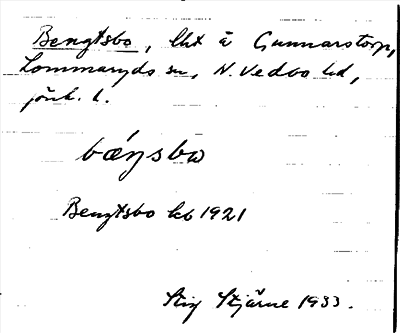 Bengtsbo, lht å Gunnarstorp,
Lommaryds sn, N. Vedbo hd,
jönk. l.
bæŋsbω
Bengtsbo kb 1921
Stig Stjärne 1933.